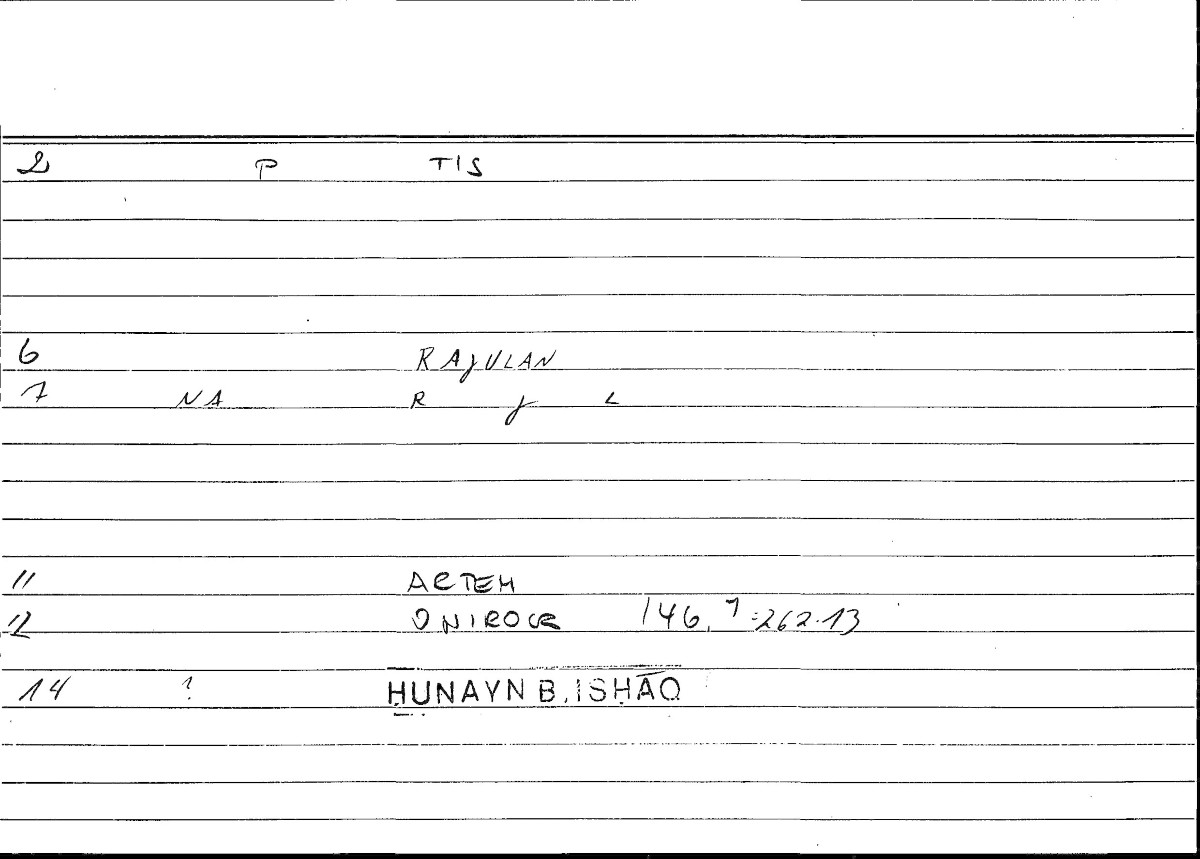 2 P TIS
6 RAJULAN
7 NA R J L
11 ARTEM
12 ONIROCR 146,7=262.13
14 ? ḤUNAYN B. ISḤĀQ